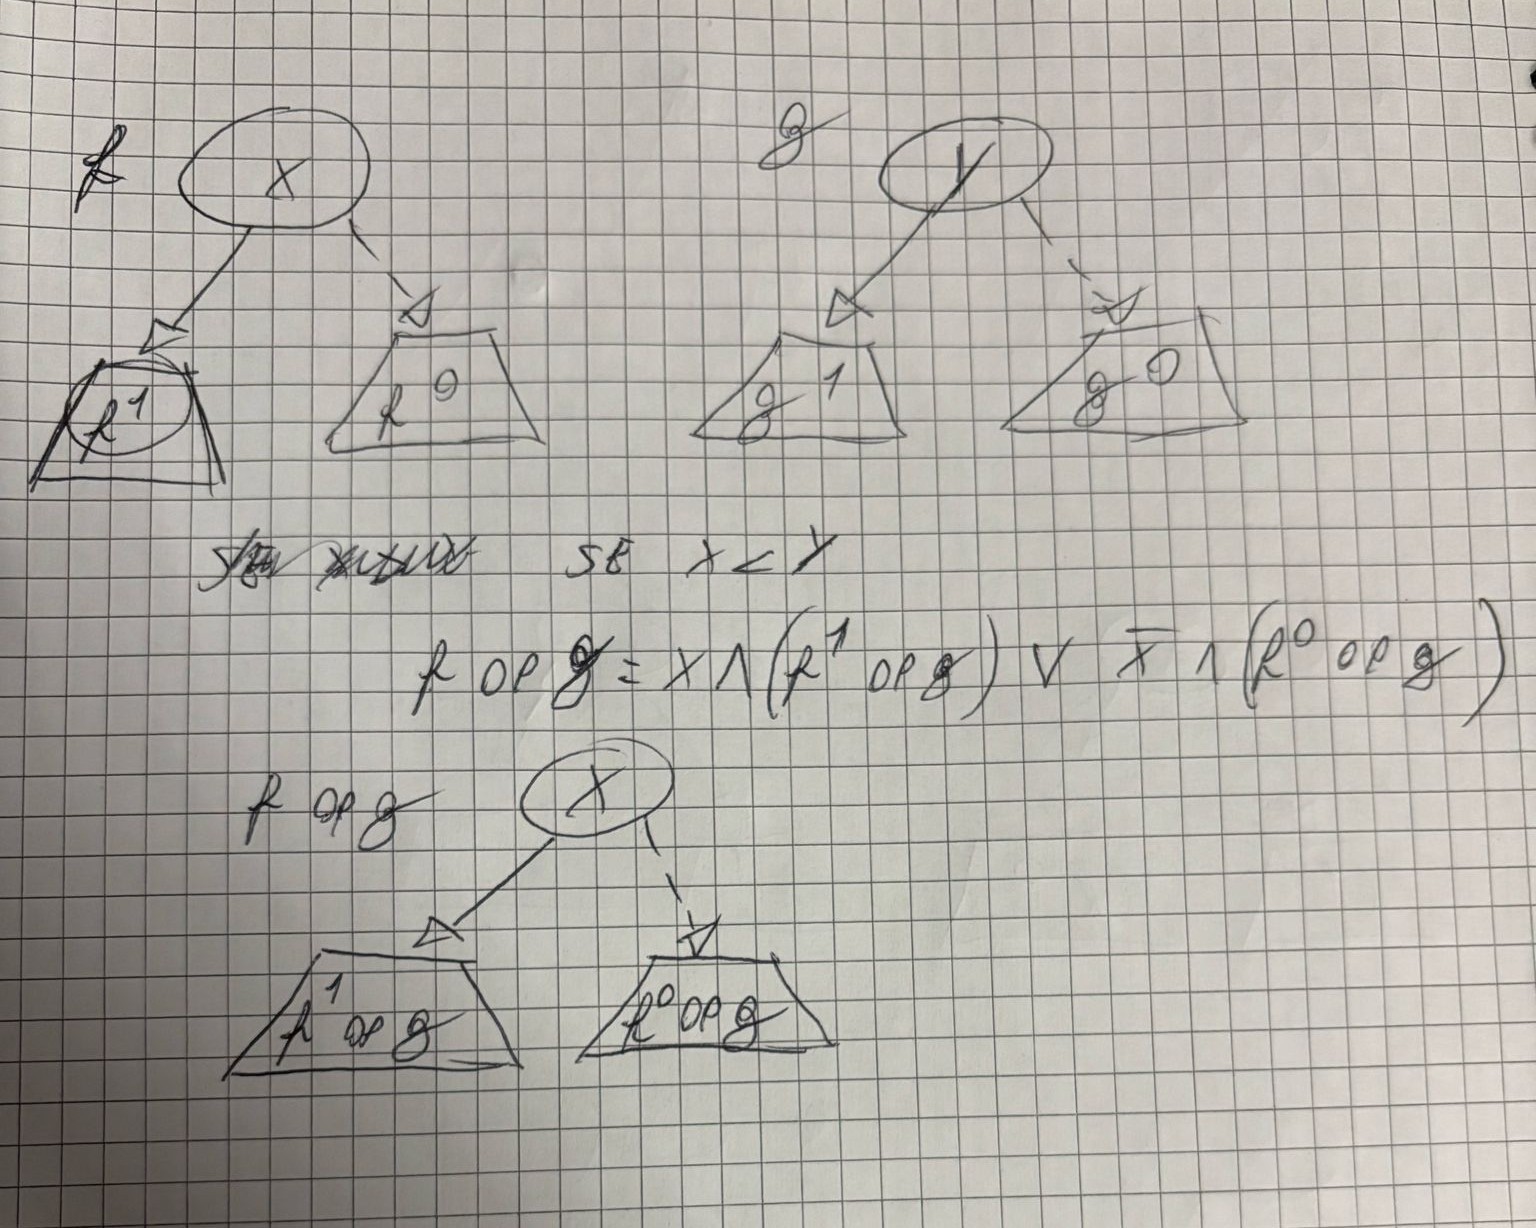 f X g Y
f¹ f⁰ g¹ g⁰
SE X < Y
f OP g = X ∧ (f¹ OP g) ∨ X̅ ∧ (f⁰ OP g)
f OP g X
f¹ OP g f⁰ OP g